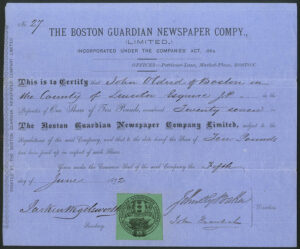 No 27
THE BOSTON GUARDIAN NEWSPAPER COMPY.,
(LIMITED.)
INCORPORATED UNDER THE COMPANIES' ACT, 186
OFFICES—Petticoat-Lane, Market-Place, BOSTON.
This is to Certify that John Oldrid of Boston in
the County of Lincoln Esquire J.P. is the
Proprietor of One Share of Ten Pounds, numbered Twenty seven in
The Boston Guardian Newspaper Company Limited, subject to the
Regulations of the said Company, and that to the date hereof the Sum of Ten Pounds
has been paid up in respect of such Share.
Given under the Common Seal of the said Company the Fifth
day of June 18
Secretary.
John
Directors